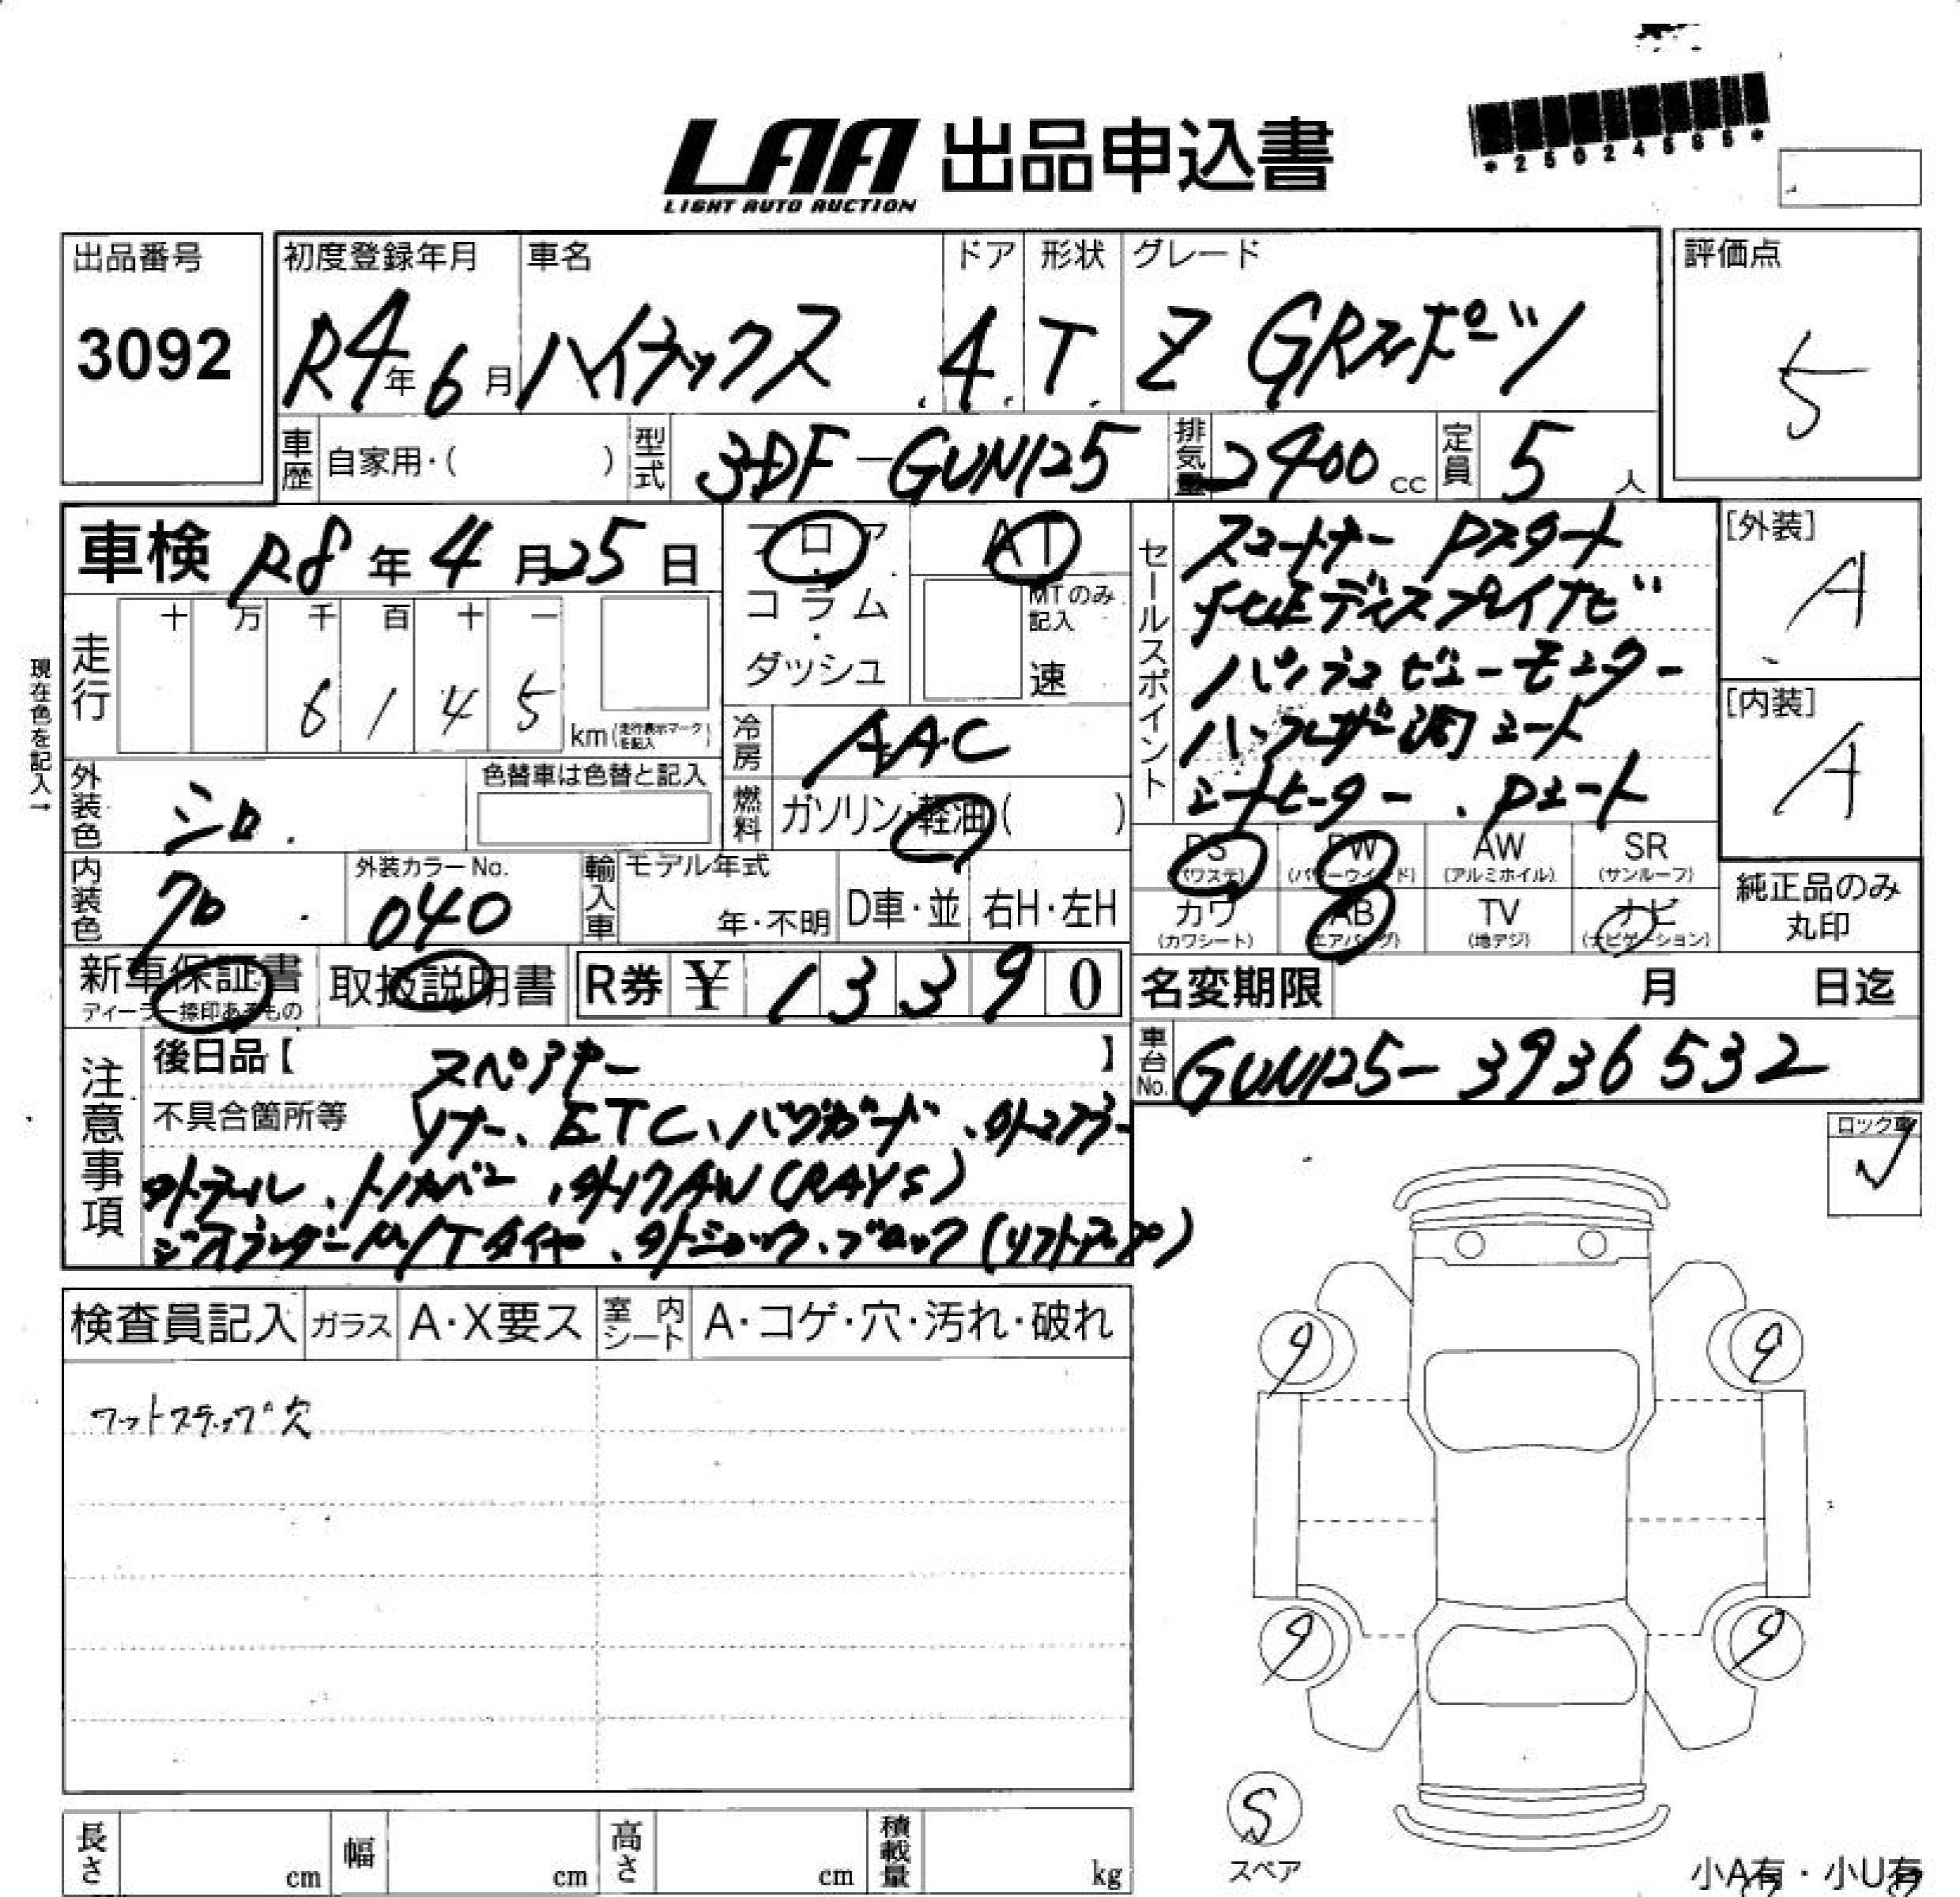 LAA 出品申込書
LIGHT AUTO AUCTION
*25024565*
出品番号
3092
初度登録年月
R4年6月
車名
ハイラックス
ドア
4
形状
T
グレード
Z GRスポーツ
評価点
5
車歴
自家用・( )
型式
3DF-GUN125
排気量
2400cc
定員
5人
車検 R8年4月25日
フロア
・
コラム
・
ダッシュ
AT
MTのみ
記入
速
セールスポイント
スマートキー Pスタート
ナビ
パノラマビューモニター
ハーフレザー調シート
シートヒーター、Pシート
[外装]
A
[内装]
A
現在色を記入→
走行
十 万 千 百 十 一
6 1 4 5
km(走行表示マークを記入)
冷房
AAC
燃料
ガソリン・軽油( )
外装色
シロ
色替車は色替と記入
内装色
クロ
外装カラーNo.
040
輸入車
モデル年式
年・不明
D車・並
右H・左H
PS
(パワステ)
PW
(パワーウインド)
AW
(アルミホイル)
SR
(サンルーフ)
カワ
(カワシート)
AB
(エアバッグ)
TV
(地デジ)
ナビ
(ナビゲーション)
純正品のみ
丸印
新車保証書
ディーラー捺印あるもの
取扱説明書
R券 ¥ 1 3 3 9 0
名変期限 月 日迄
車台No.
GUN125-3936532
注意事項
後日品【 スペアキー 】
不具合箇所等
リナー、ETC、バグガード、
外テール、トノカバー、外17AW(RAYS)
ジオランダーM/Tタイヤ、外ショック、ブロック(リフトアップ)
ロック車
検査員記入
ガラス
A・X要ス
室内シート
A・コゲ・穴・汚れ・破れ
フットステップ穴
9
9
9
9
S
スペア
長さ cm
幅 cm
高さ cm
積載量 kg
小A有・小U有